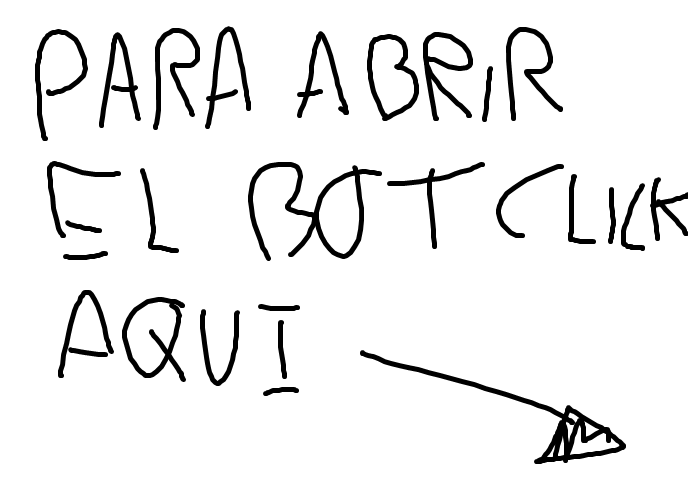 PARA ABRIR
EL BOT CLICK
AQUI